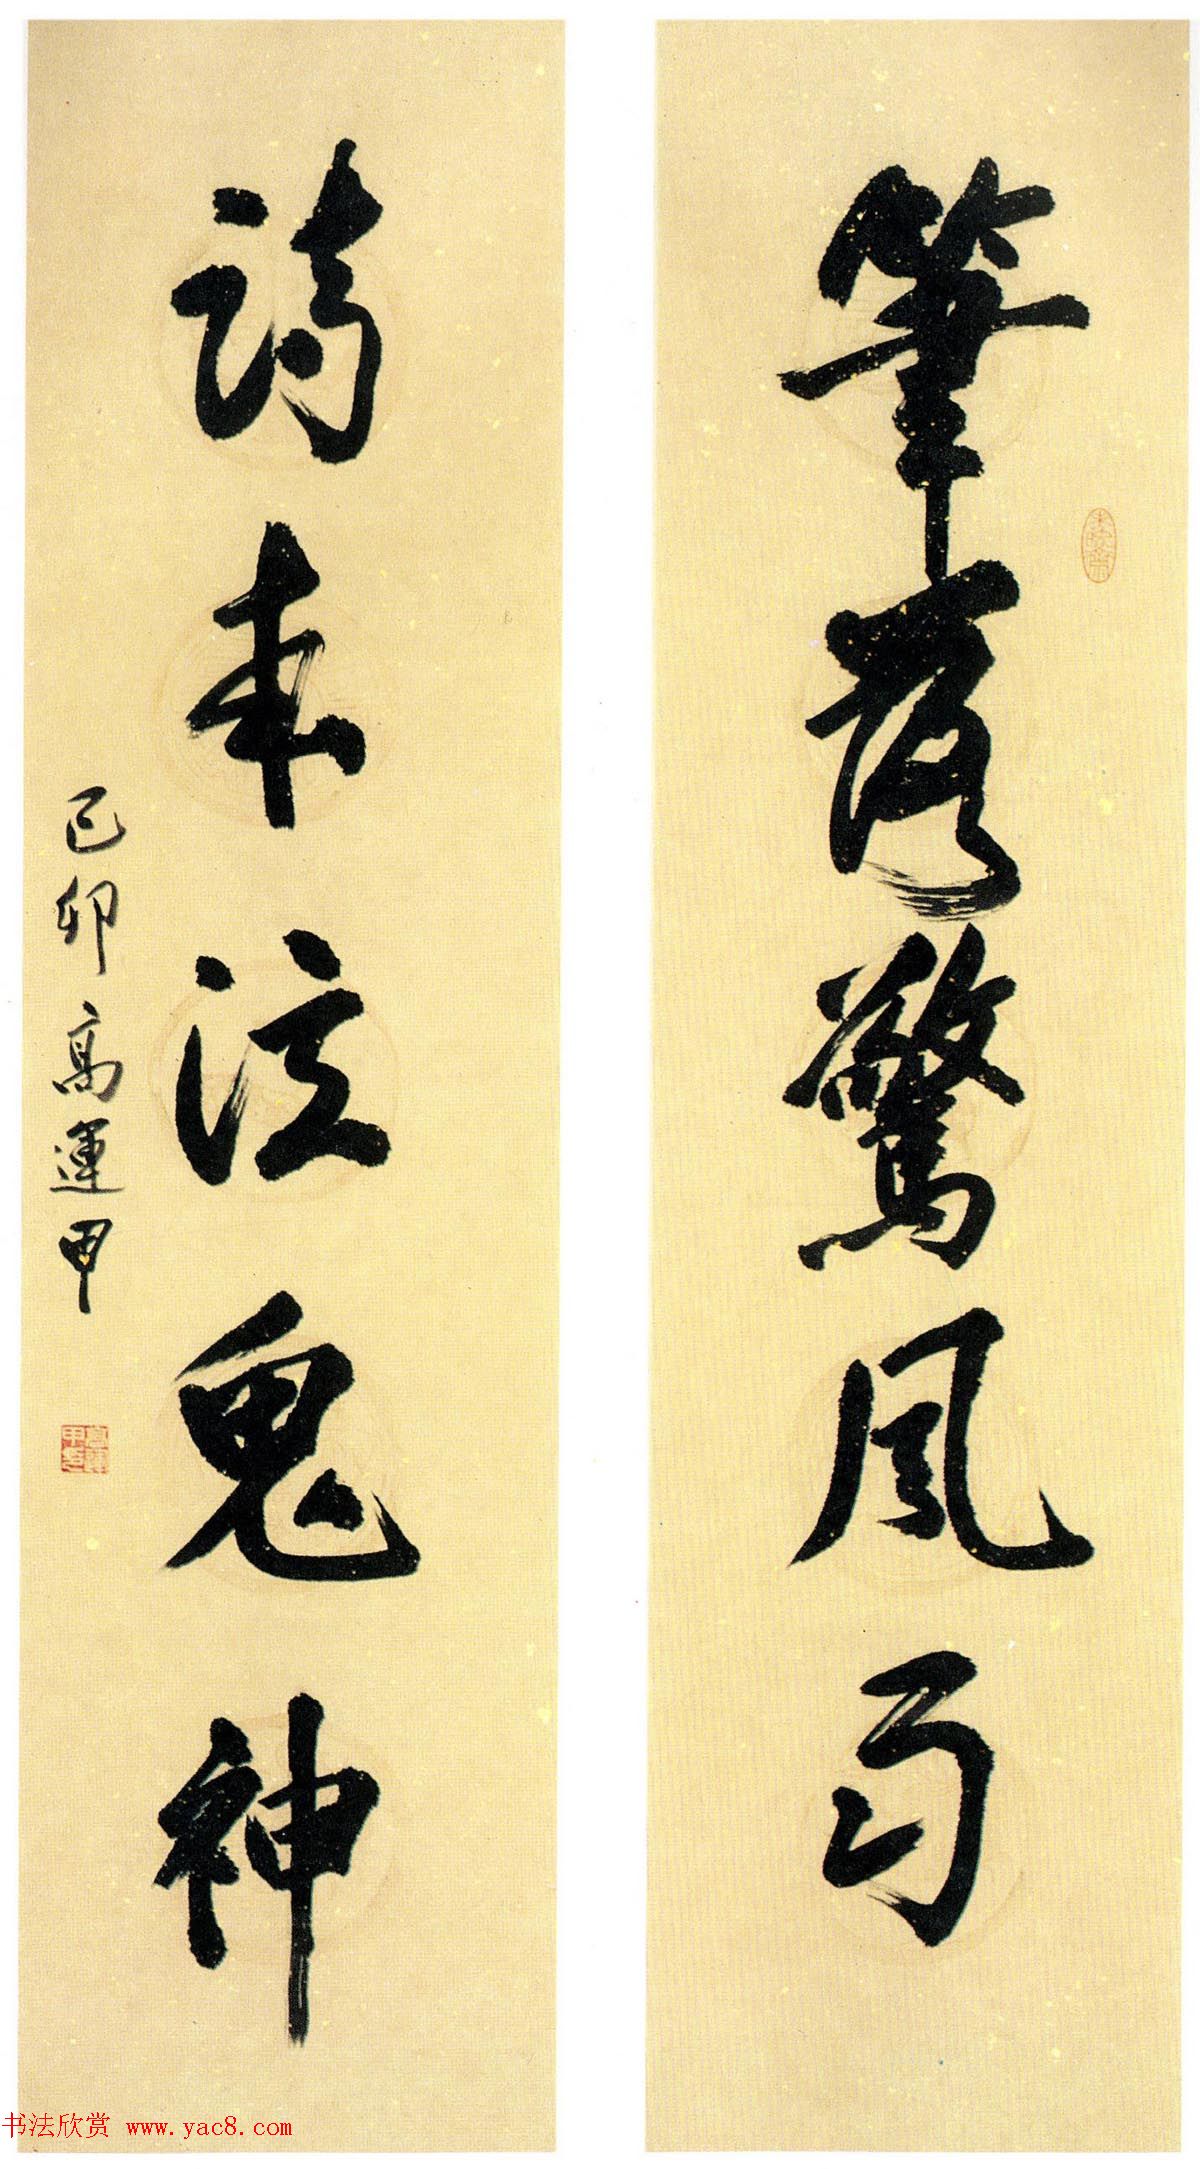 筆落驚風雨
詩成泣鬼神
己卯高運甲
书法欣赏 www.yac8.com